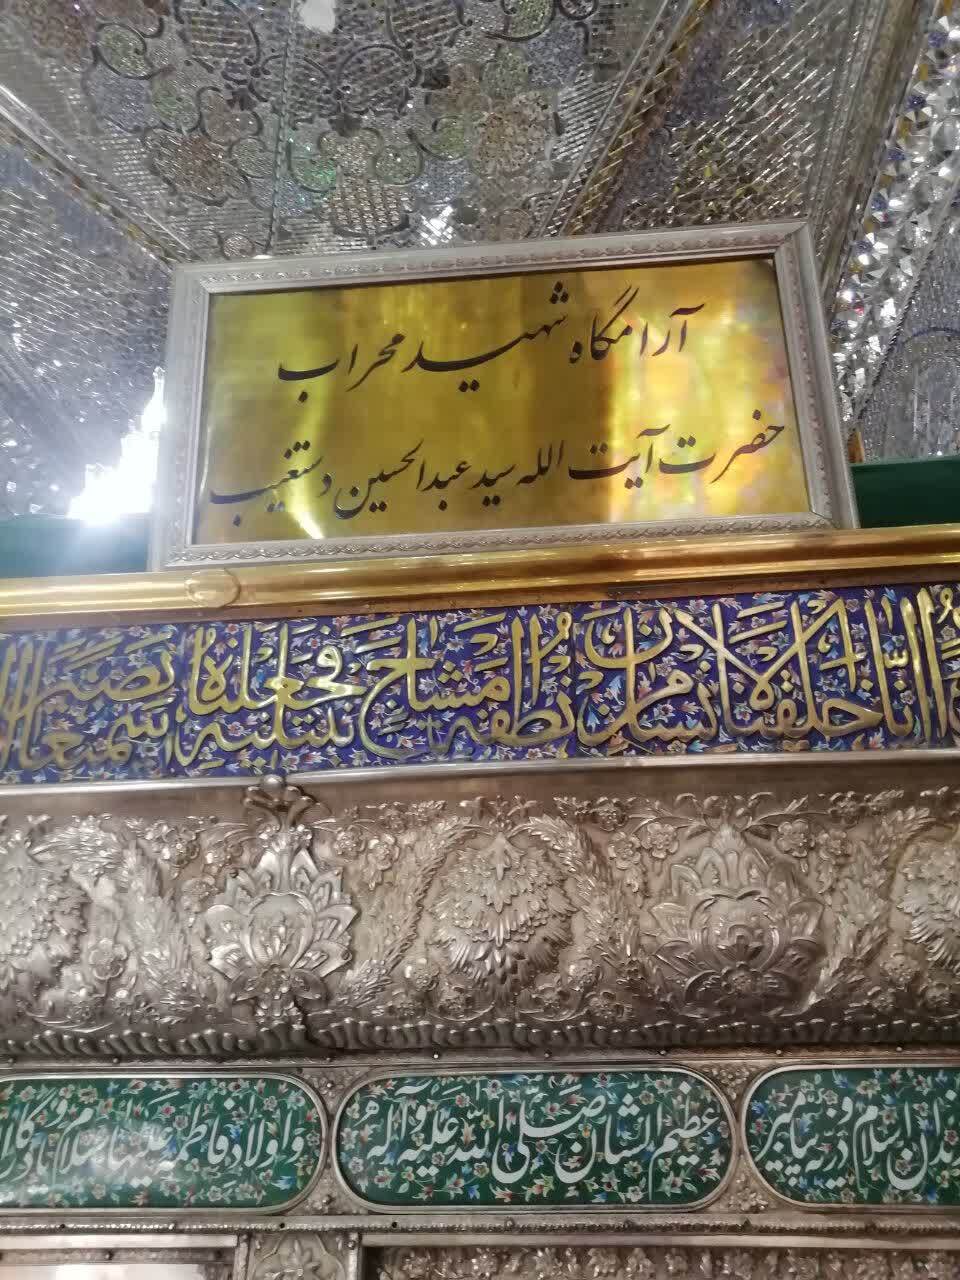 آرامگاه شهید محراب
حضرت آیت الله سید عبدالحسین دستغیب
انا خلقنا الانسان من نطفة امشاج نبتلیه فجعلناه سمیعا بصیرا
اسلام و ذریه پیامبر
عظیم الشان صلی الله علیه و آله
و اولاد فاطمه علیها سلام